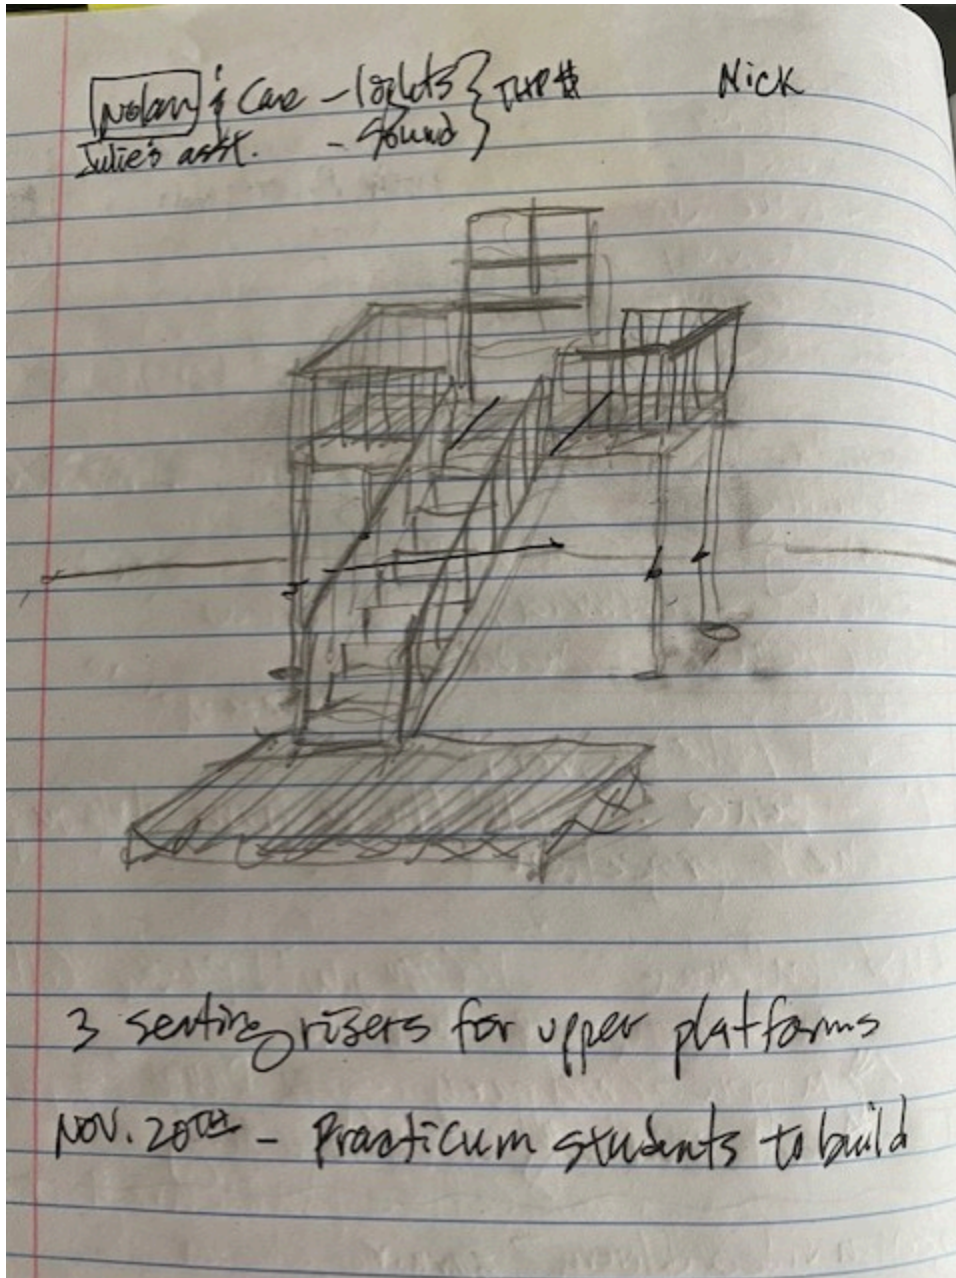 Nolan & Cave - lights } THP $ Nick
Julie's asst. - Sound
3 seating risers for upper platforms
Nov. 20th - Practicum students to build